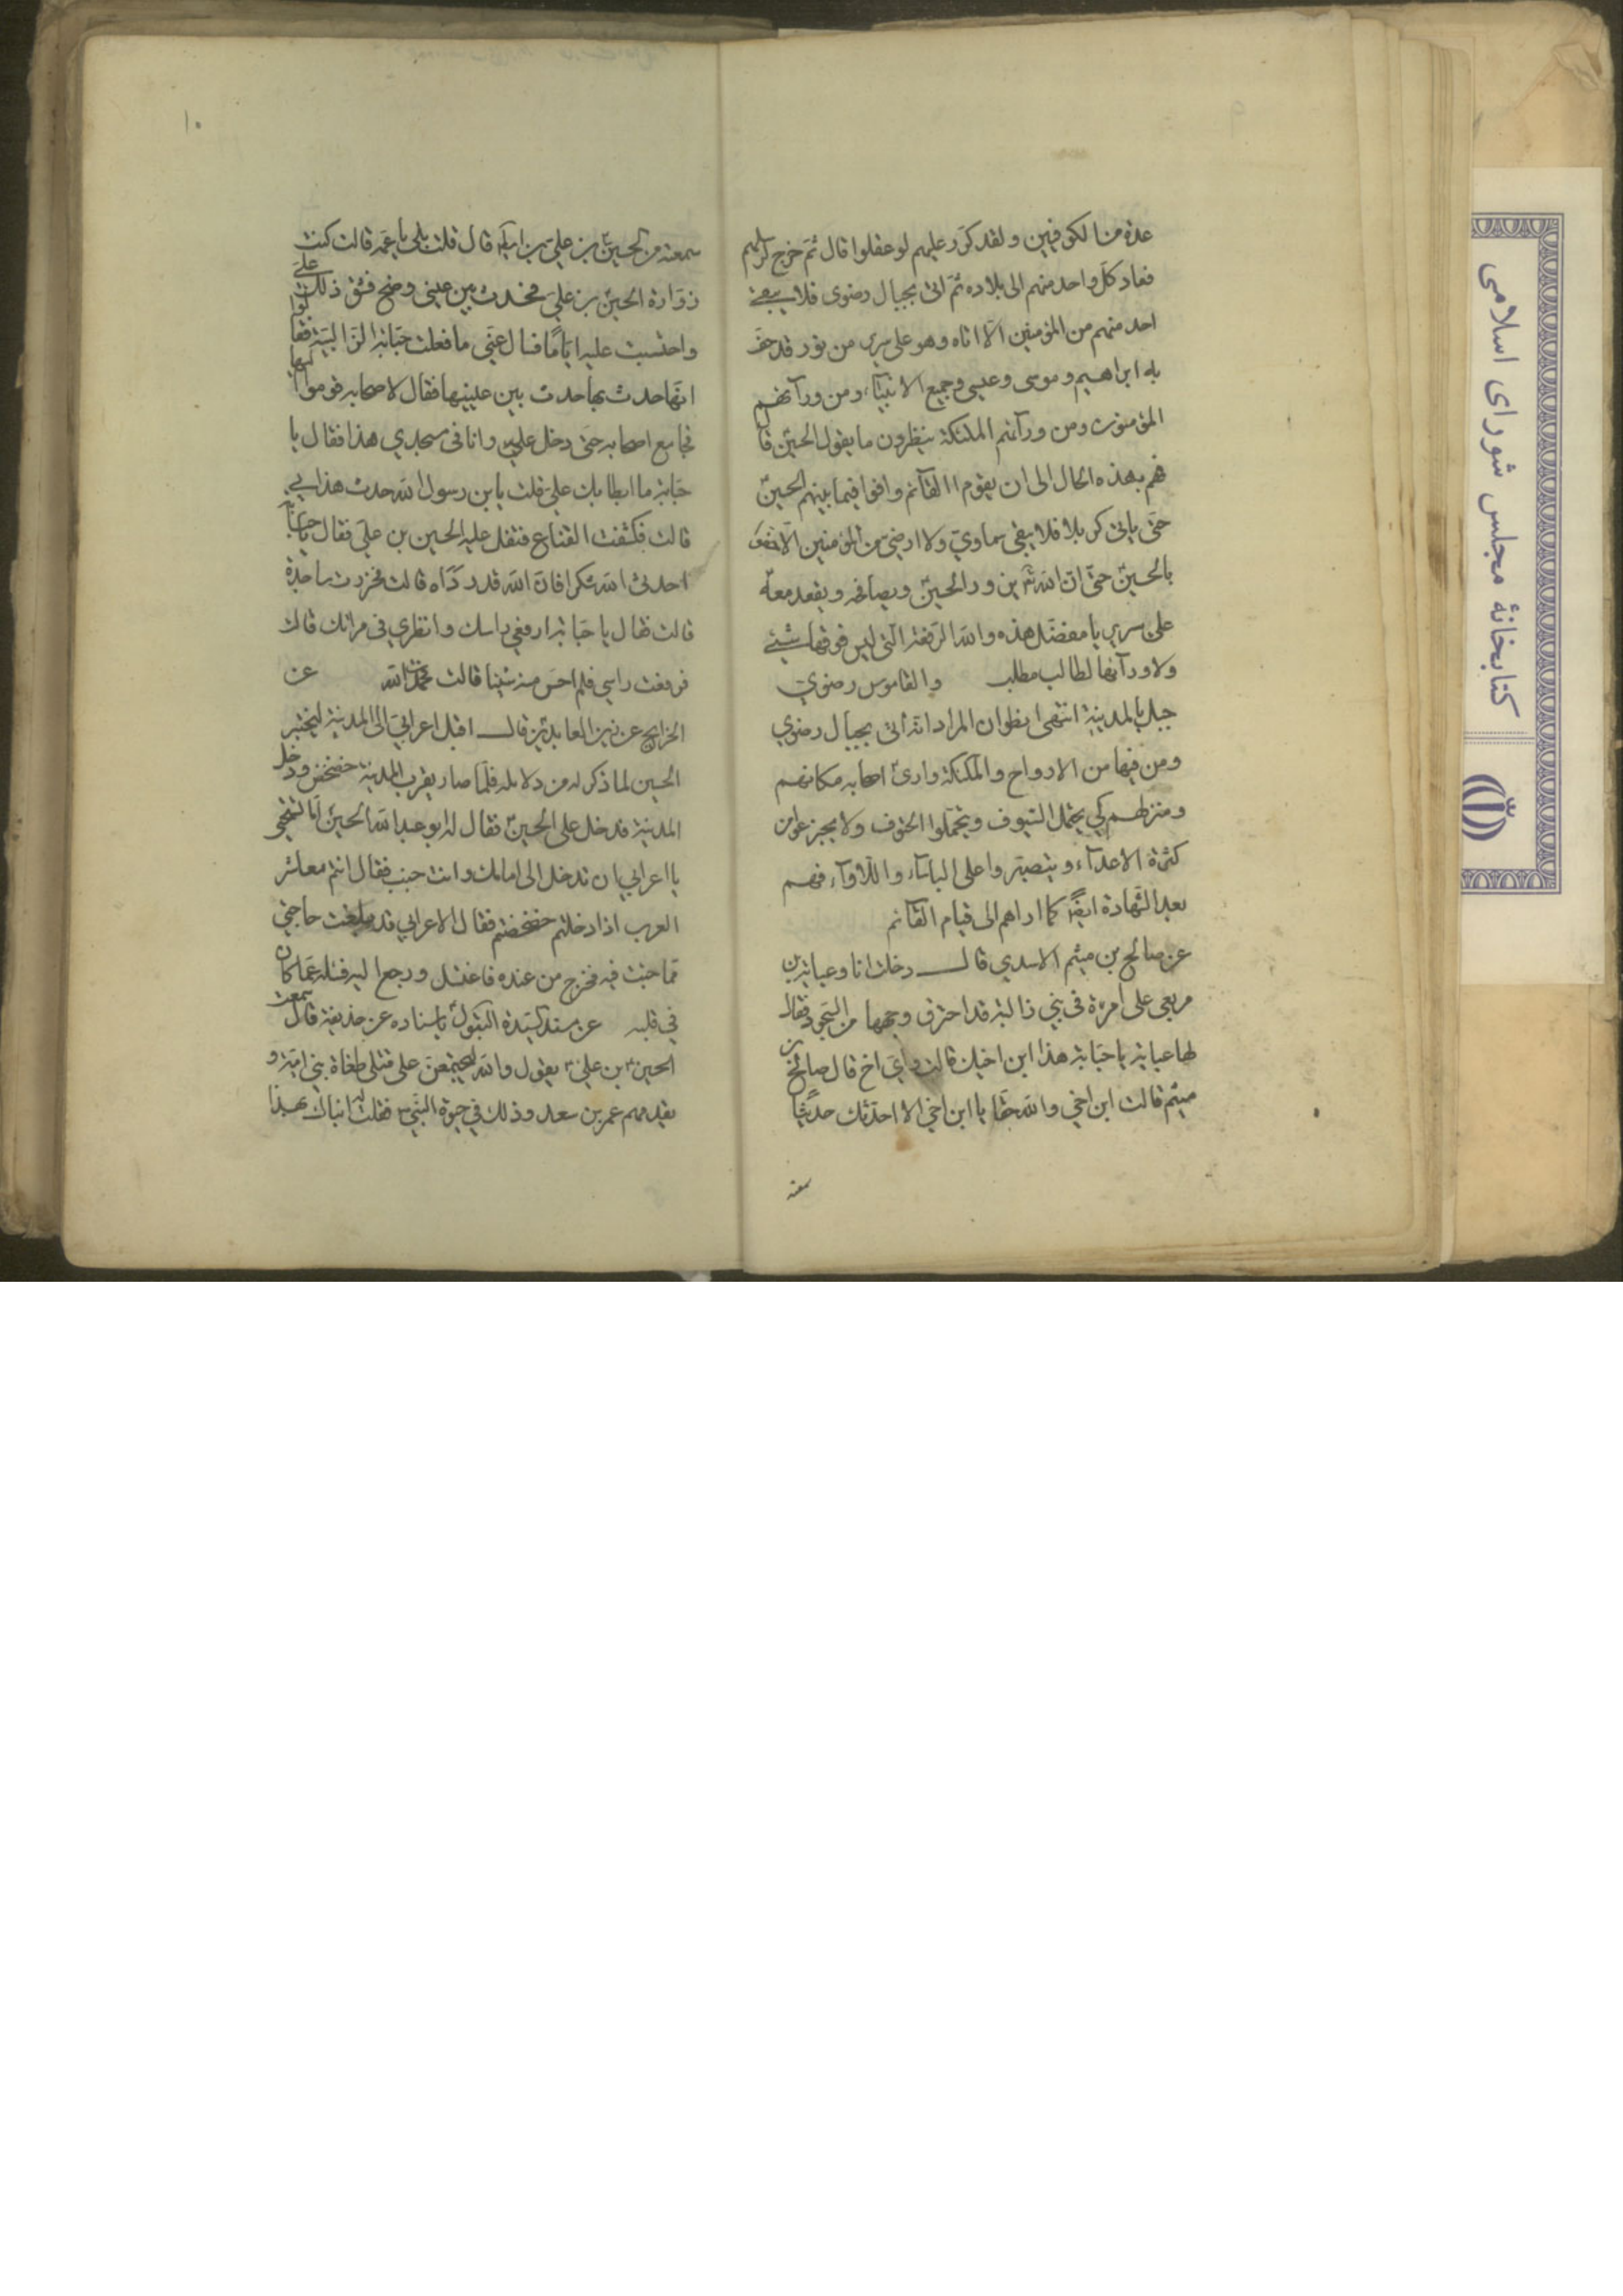 ٩
عدة من الكوفيين ولقد كرر عليهم لو عقلوا قال ثم خرج كلهم
فعاد كل واحد منهم الى بلاده ثم اتى بجبال رضوى فلا يبقى
احد منهم من المؤمنين الا اتاه وهو على سرير من نور قد حف
به ابراهيم وموسى وعيسى وجميع الانبياء ومن ورآئهم
المؤمنون ومن ورآئهم الملئكة ينظرون ما يقول الحسين قال
فهم بهذه الحال الى ان يقوم القآئم وافوا فيما بينهم الحسين
حتى ياتى كربلا فلا يبقى سماوي ولا ارضي من المؤمنين الا حف
بالحسين حتى ان الله يزور الحسين ويصافحه ويقعد معه
على سرير يا مفضل هذه والله الرفعة التى ليس فوقها شيئ
ولا ورآئها لطالب مطلب والقاموس رضوى
جبل بالمدينة انتهى اظو ان المراد انه اتى بجبال رضوى
ومن فيها من الارواح والملئكة وارى اصحابه مكانهم
ومنزلهم كي يحتمل السيوف ويتحملوا الحتوف ولا يجزعوا من
كثرة الاعدآء ويتصبروا على الباسآء واللأوآء فهم
بعد الشهادة ايضا كما اراهم الى قيام القآئم
عن صالح بن ميثم الاسدي قال دخلت انا وعباية بن
ربعى على امرءة فى بني والبة قد احترق وجهها من السجود فقال
لها عباية يا حبابة هذا ابن اخيك قالت واي اخ قال صالح بن
ميثم قالت ابن اخي والله حقا يا ابن اخي الا احدثك حديثا
سمعته
١٠
سمعته من الحسين بن علي بن ابيك قال قلت بلى يا عمه قالت كنت
زوارة الحسين بن علي فحدث بين عيني وضح فشق ذلك علي
واحتبست عليه اياما فسال عني ما فعلت حبابة الوالبية فقالوا
انها حدث بها حدث بين عينيها فقال لاصحابه قوموا اليها
فجا مع اصحابه حتى دخل علي وانا فى مسجدي هذا فقال يا
حبابة ما ابطا بك علي قلت يا بن رسول الله حدث هذا بي
قالت فكشفت القناع فتفل عليه الحسين بن علي فقال يا حبابة
احدثى الله شكرا فان الله قد درَأه قالت فخررت ساجدة
قالت فقال يا حبابة ارفعي راسك وانظري فى مراتك قالت
فرفعت راسي فلم احس منه شيئا قالت فحمدت الله عن
الخرايج عن زين العابدين قال اقبل اعرابي الى المدينة ليختبر
الحسين لما ذكر له من دلايله فلما صار بقرب المدينة خضخض ودخل
المدينة فدخل على الحسين فقال له ابو عبد الله الحسين اما تستحيي
يا اعرابي ان تدخل الى امامك وانت جنب فقال انتم معاشر
العرب اذا دخلتم خضخضتم فقال الاعرابي قد بلغت حاجتي
مما جئت فيه فخرج من عنده فاغتسل ورجع اليه فسئله عما كان
في قلبه عن مسند السيدة البتول باسناده عن حذيفة قال سمعت
الحسين بن علي يقول والله ليجتمعن على قتلى طغاة بني امية و
يقدمهم عمر بن سعد وذلك في حيوة النبي فقلت له انباك بهذا
كتابخانۀ مجلس شوراى اسلامى